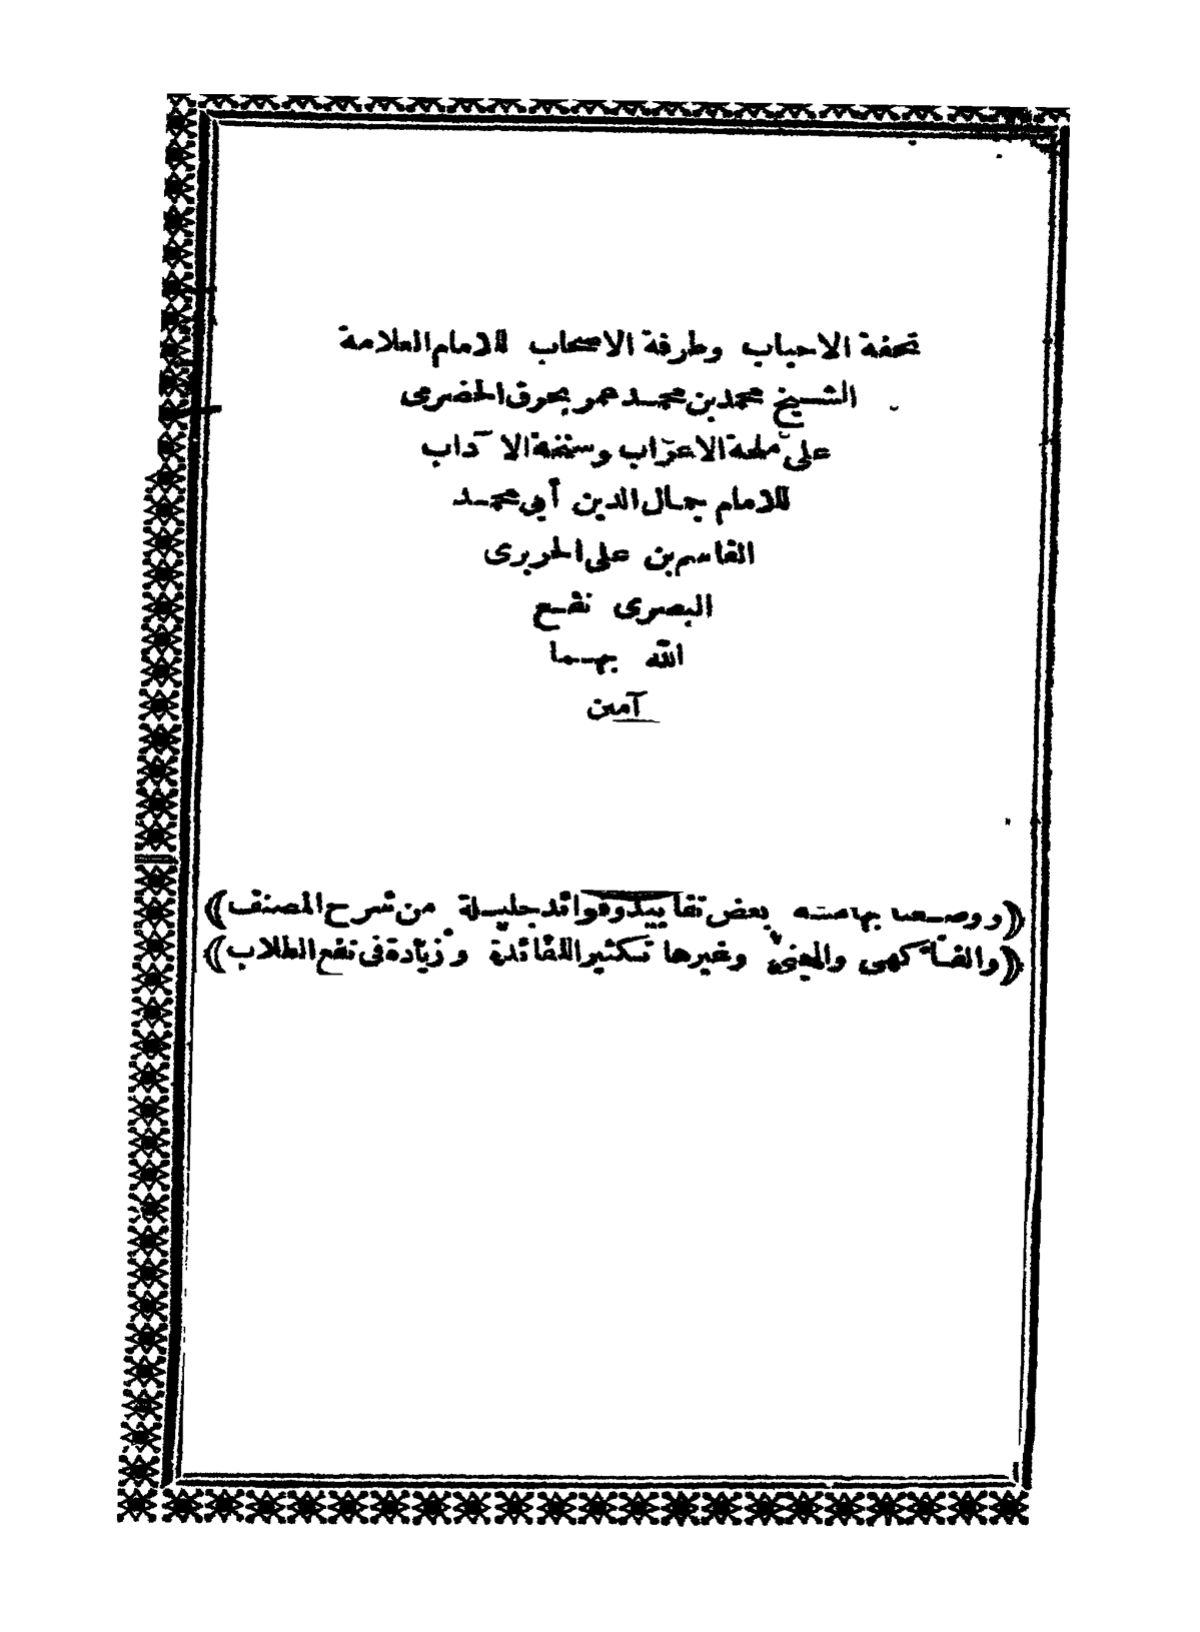 تحفة الاحباب وطرفة الاصحاب للامام العلامة
الشيخ محمد بن محمد عمر بحرق الحضرمى
على ملحة الاعراب وسنخة الآداب
للامام جمال الدين أبى محمد
القاسم بن على الحريرى
البصرى نفع
الله بهما
آمين
((ووضعنا بهامشه بعض تقاييد وفوائد جليلة من شرح المصنف))
((والفاكهى والمعنى وغيرها تكثير اللفائدة وزيادة فى نفع الطلاب))